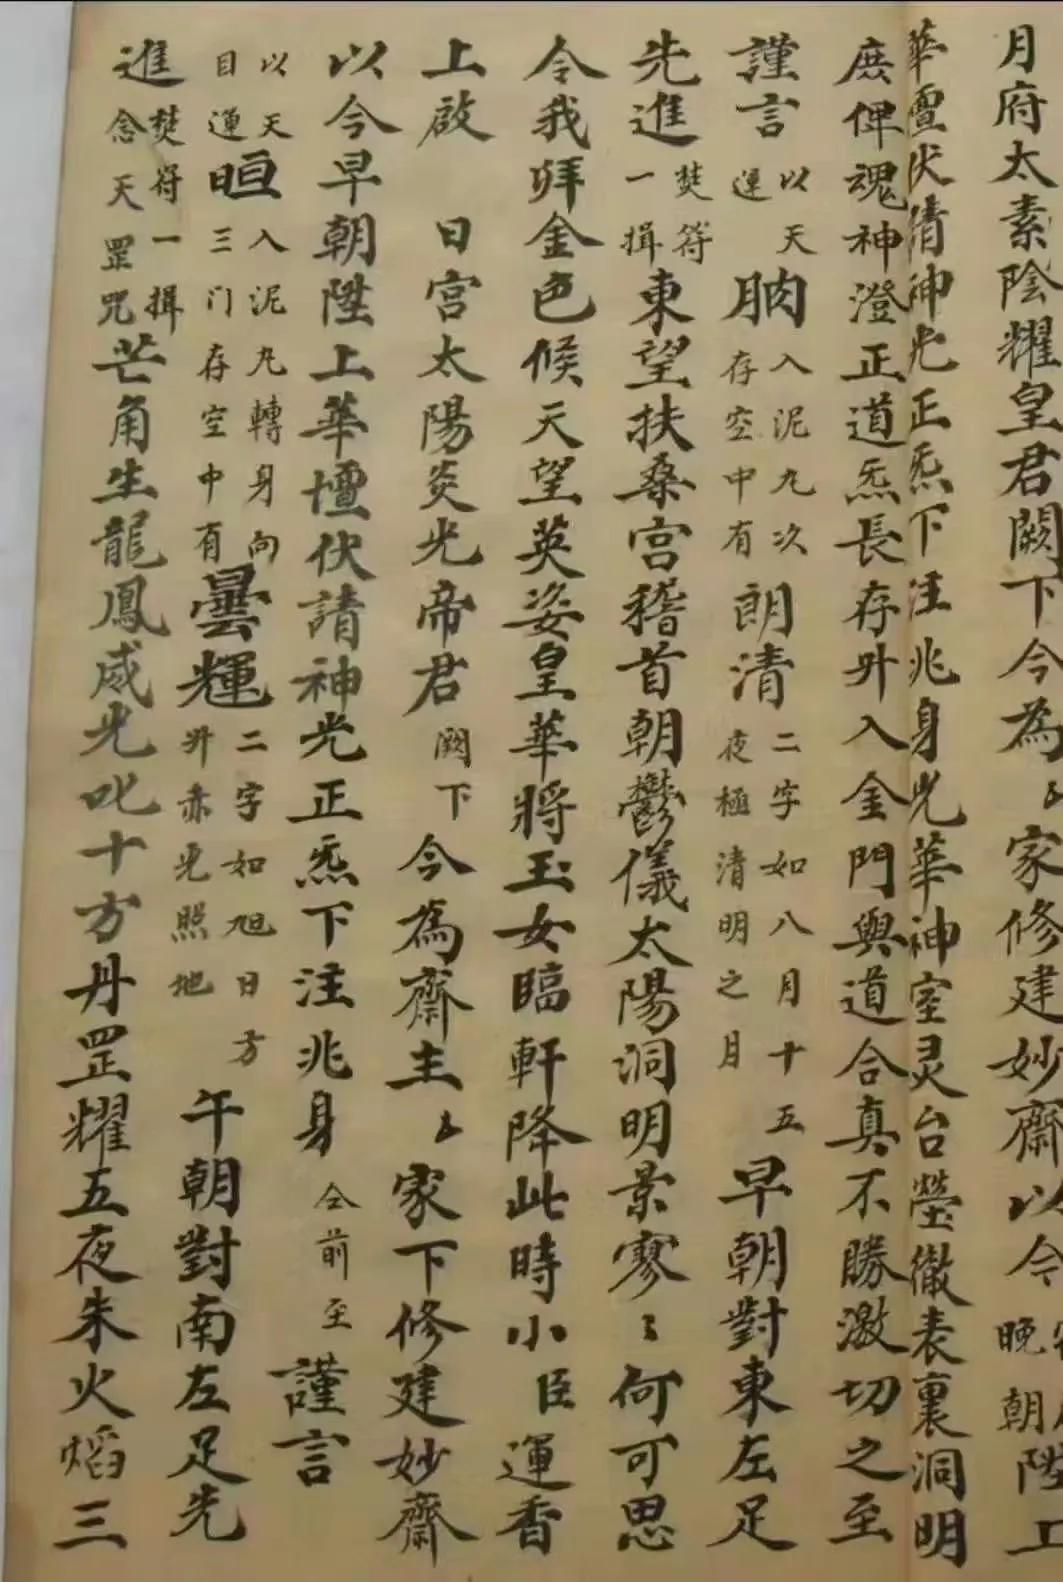 月府太素陰耀皇君闕下今為〻家修建妙齋以今晚朝陞上
華壇伏請神光正炁下注兆身光華神室灵台瑩徹表裏洞明
庶俾魂神澄正道炁長存升入金門與道合真不勝激切之至
謹言以天運肭入泥九次存空中有朗清二字如八月十五夜極清明之月早朝對東左足
先進焚符一揖東望扶桑宮稽首朝鬱儀太陽洞明景寥〻何可思
令我拜金色候天望英姿皇華將玉女臨軒降此時小臣運香
上啟 日宮太陽炎光帝君闕下今為齋主〻家下修建妙齋
以今早朝陞上華壇伏請神光正炁下注兆身仝前至謹言
以天目運晅入泥九轉身向三门存空中有曇輝二字如旭日方升赤光照地午朝對南左足先
進焚符一揖念天罡咒芒角生龍鳳威光叱十方丹罡耀五夜朱火熖三